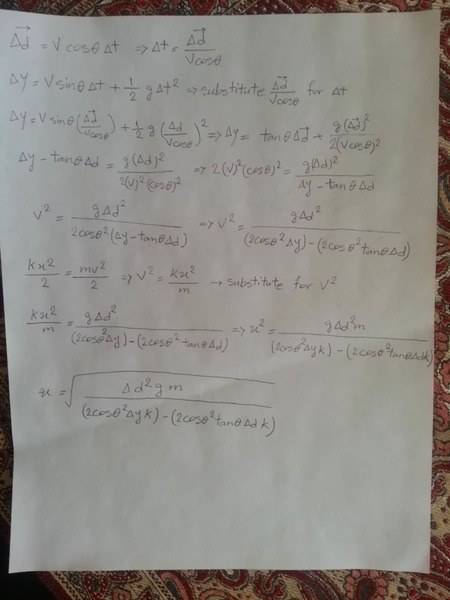 Δd⃗ = V cosθ Δt ⇒ Δt = Δd⃗/Vcosθ
Δy = V sinθ Δt + 1/2 gΔt² ⇒ substitute Δd⃗/Vcosθ for Δt
Δy = V sinθ(Δd⃗/Vcosθ) + 1/2 g(Δd/Vcosθ)² ⇒ Δy = tanθ Δd⃗ + g(Δd⃗)²/2(Vcosθ)²
Δy - tanθ Δd = g(Δd)²/2(V)²(cosθ)² ⇒ 2(V)²(cosθ)² = g(Δd)²/Δy - tanθ Δd
V² = gΔd²/2cosθ²(Δy - tanθΔd) ⇒ V² = gΔd²/(2cosθ²Δy) - (2cosθ²tanθΔd)
kx²/2 = mv²/2 ⇒ V² = kx²/m → substitute for V²
kx²/m = gΔd²/(2cosθ²Δy) - (2cosθ²tanθΔd) ⇒ x² = gΔd²m/(2cosθ²Δyk) - (2cosθ²tanθΔdk)
x = √(Δd²gm/(2cosθ²Δyk) - (2cosθ²tanθΔdk))